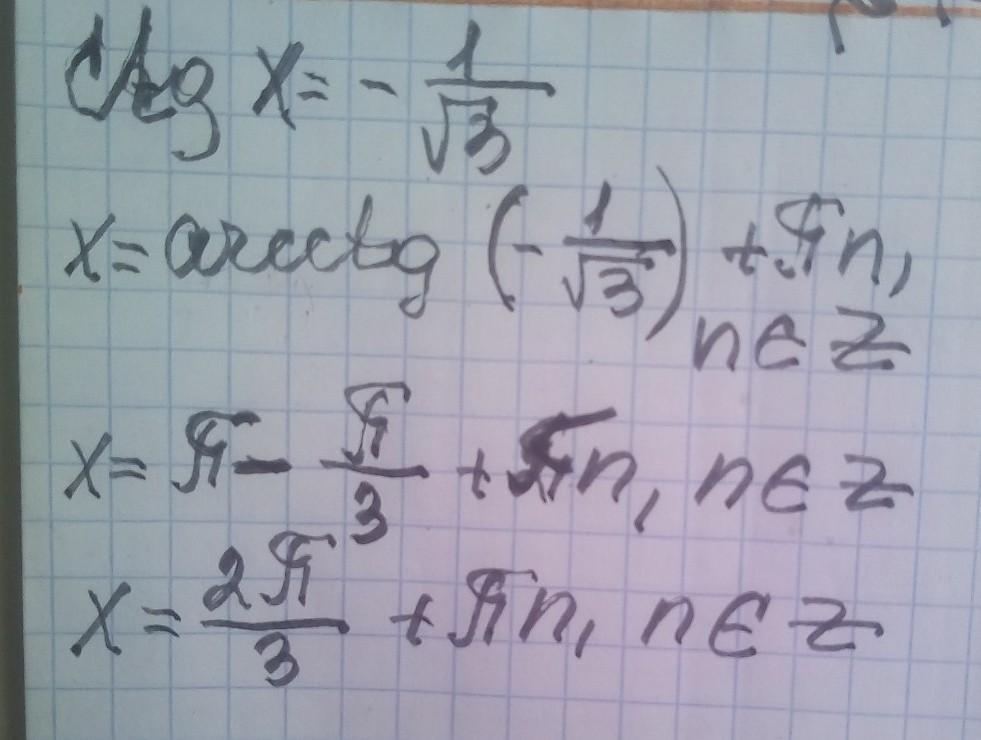 Ctg x = - 1/√3
x = arcctg (- 1/√3) + πn,
n ∈ Z
x = π - π/3 + πn, n ∈ Z
x = 2π/3 + πn, n ∈ Z